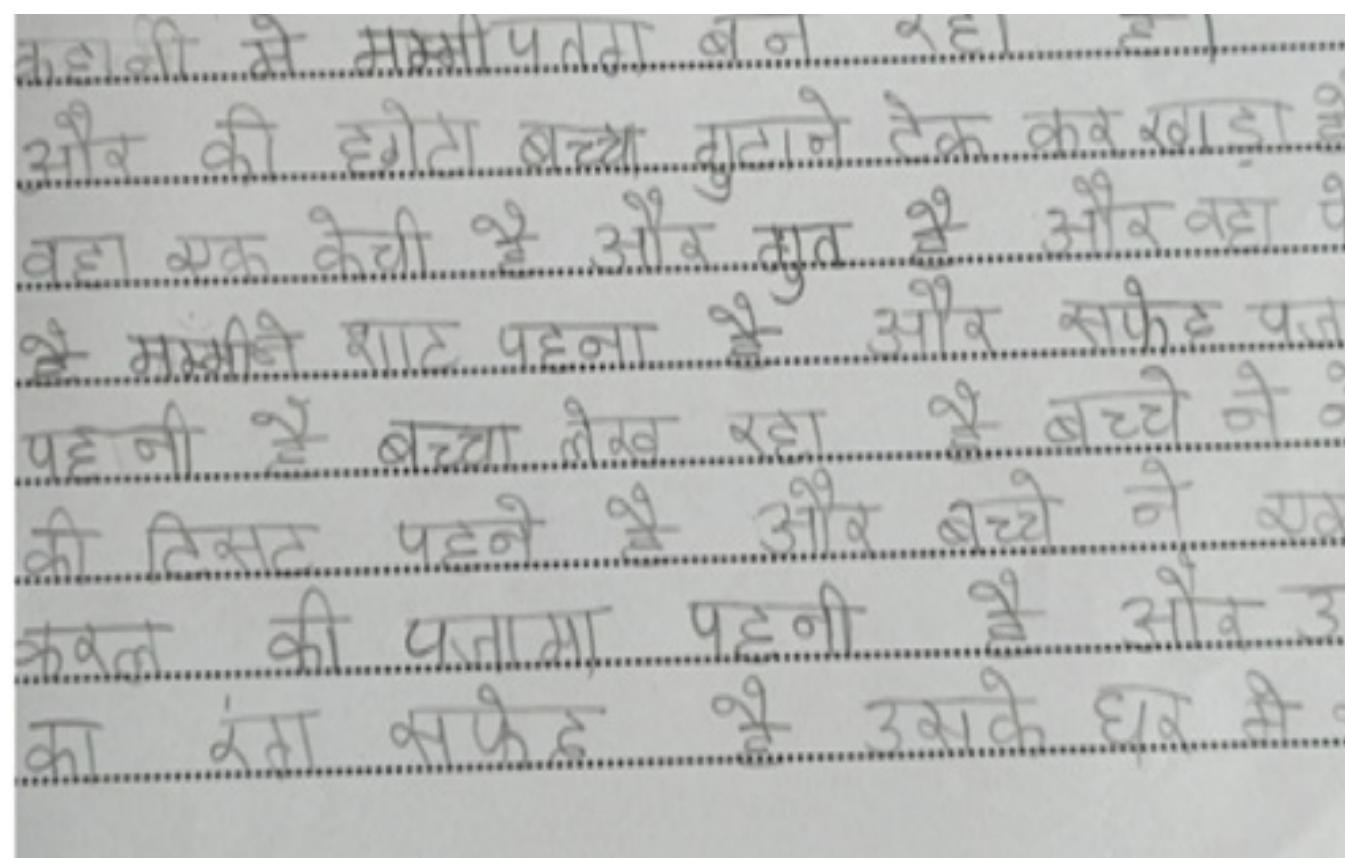 कहानी मे मम्मी पतग बन रहा है।
और की हगेटा बच्चा गुटाने टेक कर खाडा है
वहा एक केची है और गुत है और वहा
है मम्मीने शाट पहना है और सफेद पज
पहनी है बच्चा लेख रहा है बच्चे ने
की टिसट पहने है और बच्चे ने एक
करल की पजामा पहनी है और उ
का रंग सफेद है उसके घर मे